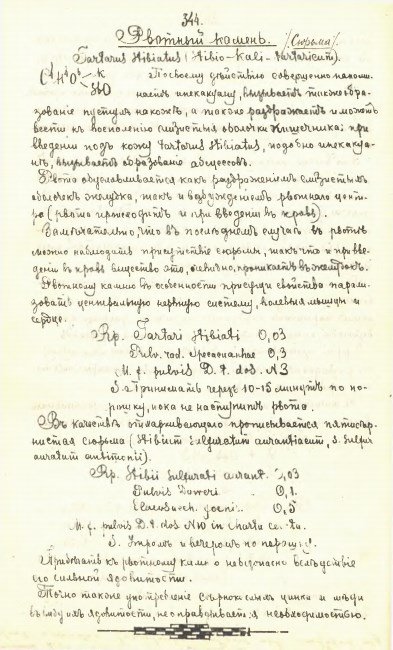 344.
Рвотный камень. /Сюрьма/.
Tartarus stibiatus (Stibio-Kali-tartaricum).
C⁴H⁴O⁶ K SbO По своему дѣйствію совершенно напоми-
наетъ ипекакуану, вызываетъ также обра-
зованіе пустулъ на кожѣ, а также раздражаетъ и можетъ
вести къ воспаленію слизистыя оболочки кишечника; при
введеніи подъ кожу Tartarus stibiatus, подобно ипекакуа-
нѣ, вызываетъ образованіе абсцессовъ.
Рвота обусловливается какъ раздраженіемъ слизистыхъ
оболочекъ желудка, такъ и возбужденіемъ рвотнаго цент-
ра (рвота происходитъ и при введеніи въ кровь).
Замѣчательно, что въ послѣднемъ случаѣ въ рвотѣ
можно наблюдать присутствіе сюрьмы, такъ что и при вве-
деніи въ кровь вещество это, очевидно, проникаетъ въ желудокъ.
Рвотному камню въ особенности присущи свойства парали-
зовать центральную нервную систему, волевыя мышцы и
сердце.
Rp. Tartari stibiati 0,03
Pulv. rad. Ipecacuanhae 0,3
M. f. pulvis D. t. dos. N 3
S. Принимать черезъ 10-15 минутъ по по-
рошку, пока не наступитъ рвота.
Въ качествѣ отхаркивающаго прописывается пятисѣр-
нистая сюрьма (Stibium sulfuratum aurantiacum, s. Sulfur
auratum antimonii).
Rp. Stibii sulfurati aurant. 0,03
Pulvis Doweri 0,1
Elaeosacch. foeni.. 0,5
M. f. pulvis D. t. dos N 10 in charta ce..ta
S. Утромъ и вечеромъ по порошку.
Прибѣгать къ рвотному камню небезопасно вслѣдствіе
его сильной ядовитости.
Точно также употребленіе сѣрнокислыхъ цинка и мѣди
въ виду ихъ ядовитости, не оправдывается необходимостью.